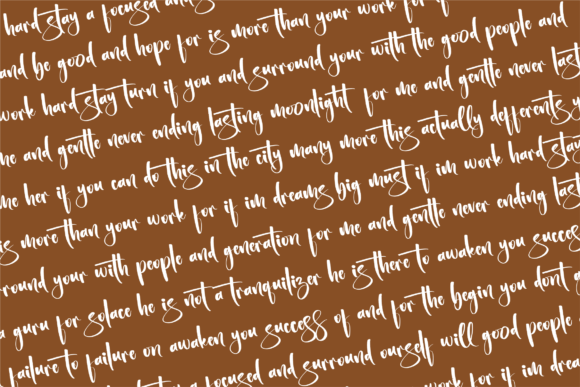 hard stay a focused and s
and be good and hope for is more than your work for if
work hard stay turn if you and surround your with the good people and
me and gentle never ending lasting moonlight for me and gentle never last
me her if you can do this in the city many more this actually defferents
is more than your work for if im dreams big must if im work hard stay
round your with people and generation for me and gentle never ending last
a guru for solace he is not a tranquilizer he is there to awaken you success
failure to failure on awaken you success of and for the begin you dont
a focused and surround ourself will good people
work for if im drea